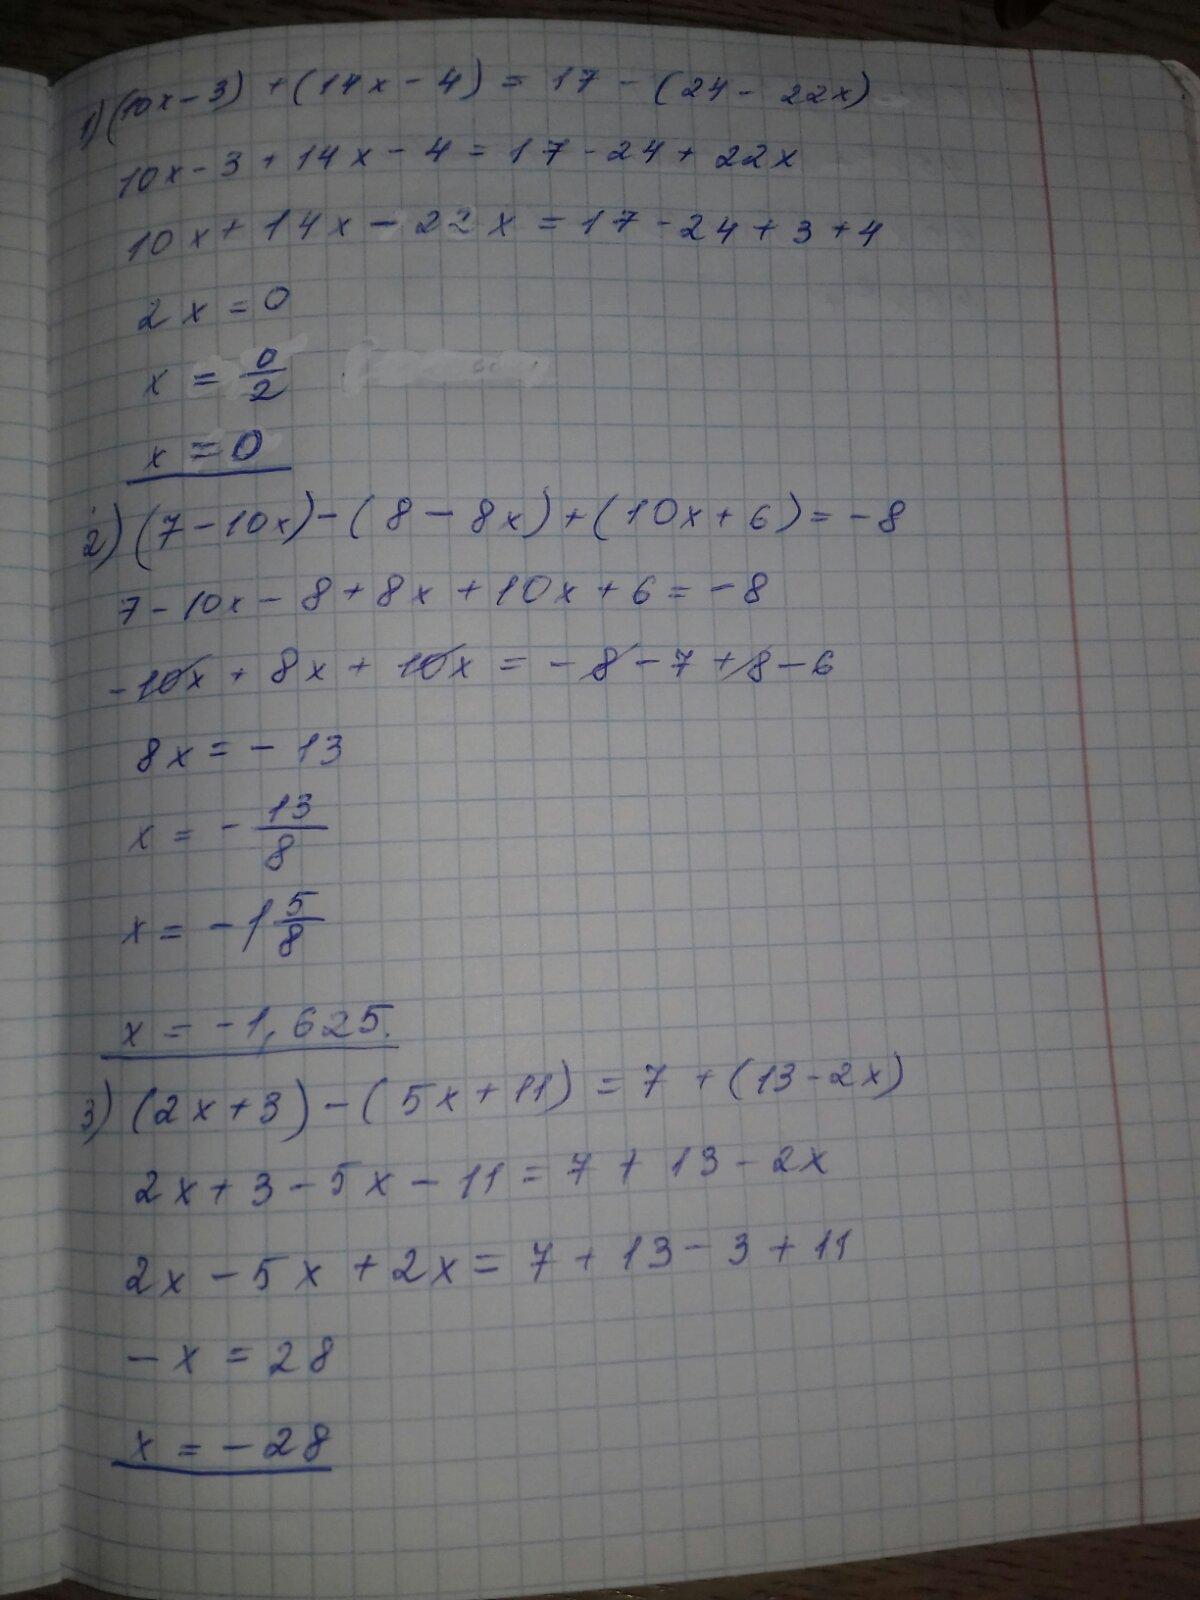 1) (10x - 3) + (14x - 4) = 17 - (24 - 22x)
10x - 3 + 14x - 4 = 17 - 24 + 22x
10x + 14x - 22x = 17 - 24 + 3 + 4
2x = 0
x = 0/2
x = 0
2) (7 - 10x) - (8 - 8x) + (10x + 6) = -8
7 - 10x - 8 + 8x + 10x + 6 = -8
-10x + 8x + 10x = -8 - 7 + 8 - 6
8x = -13
x = -13/8
x = -1 5/8
x = -1,625.
3) (2x + 3) - (5x + 11) = 7 + (13 - 2x)
2x + 3 - 5x - 11 = 7 + 13 - 2x
2x - 5x + 2x = 7 + 13 - 3 + 11
-x = 28
x = -28